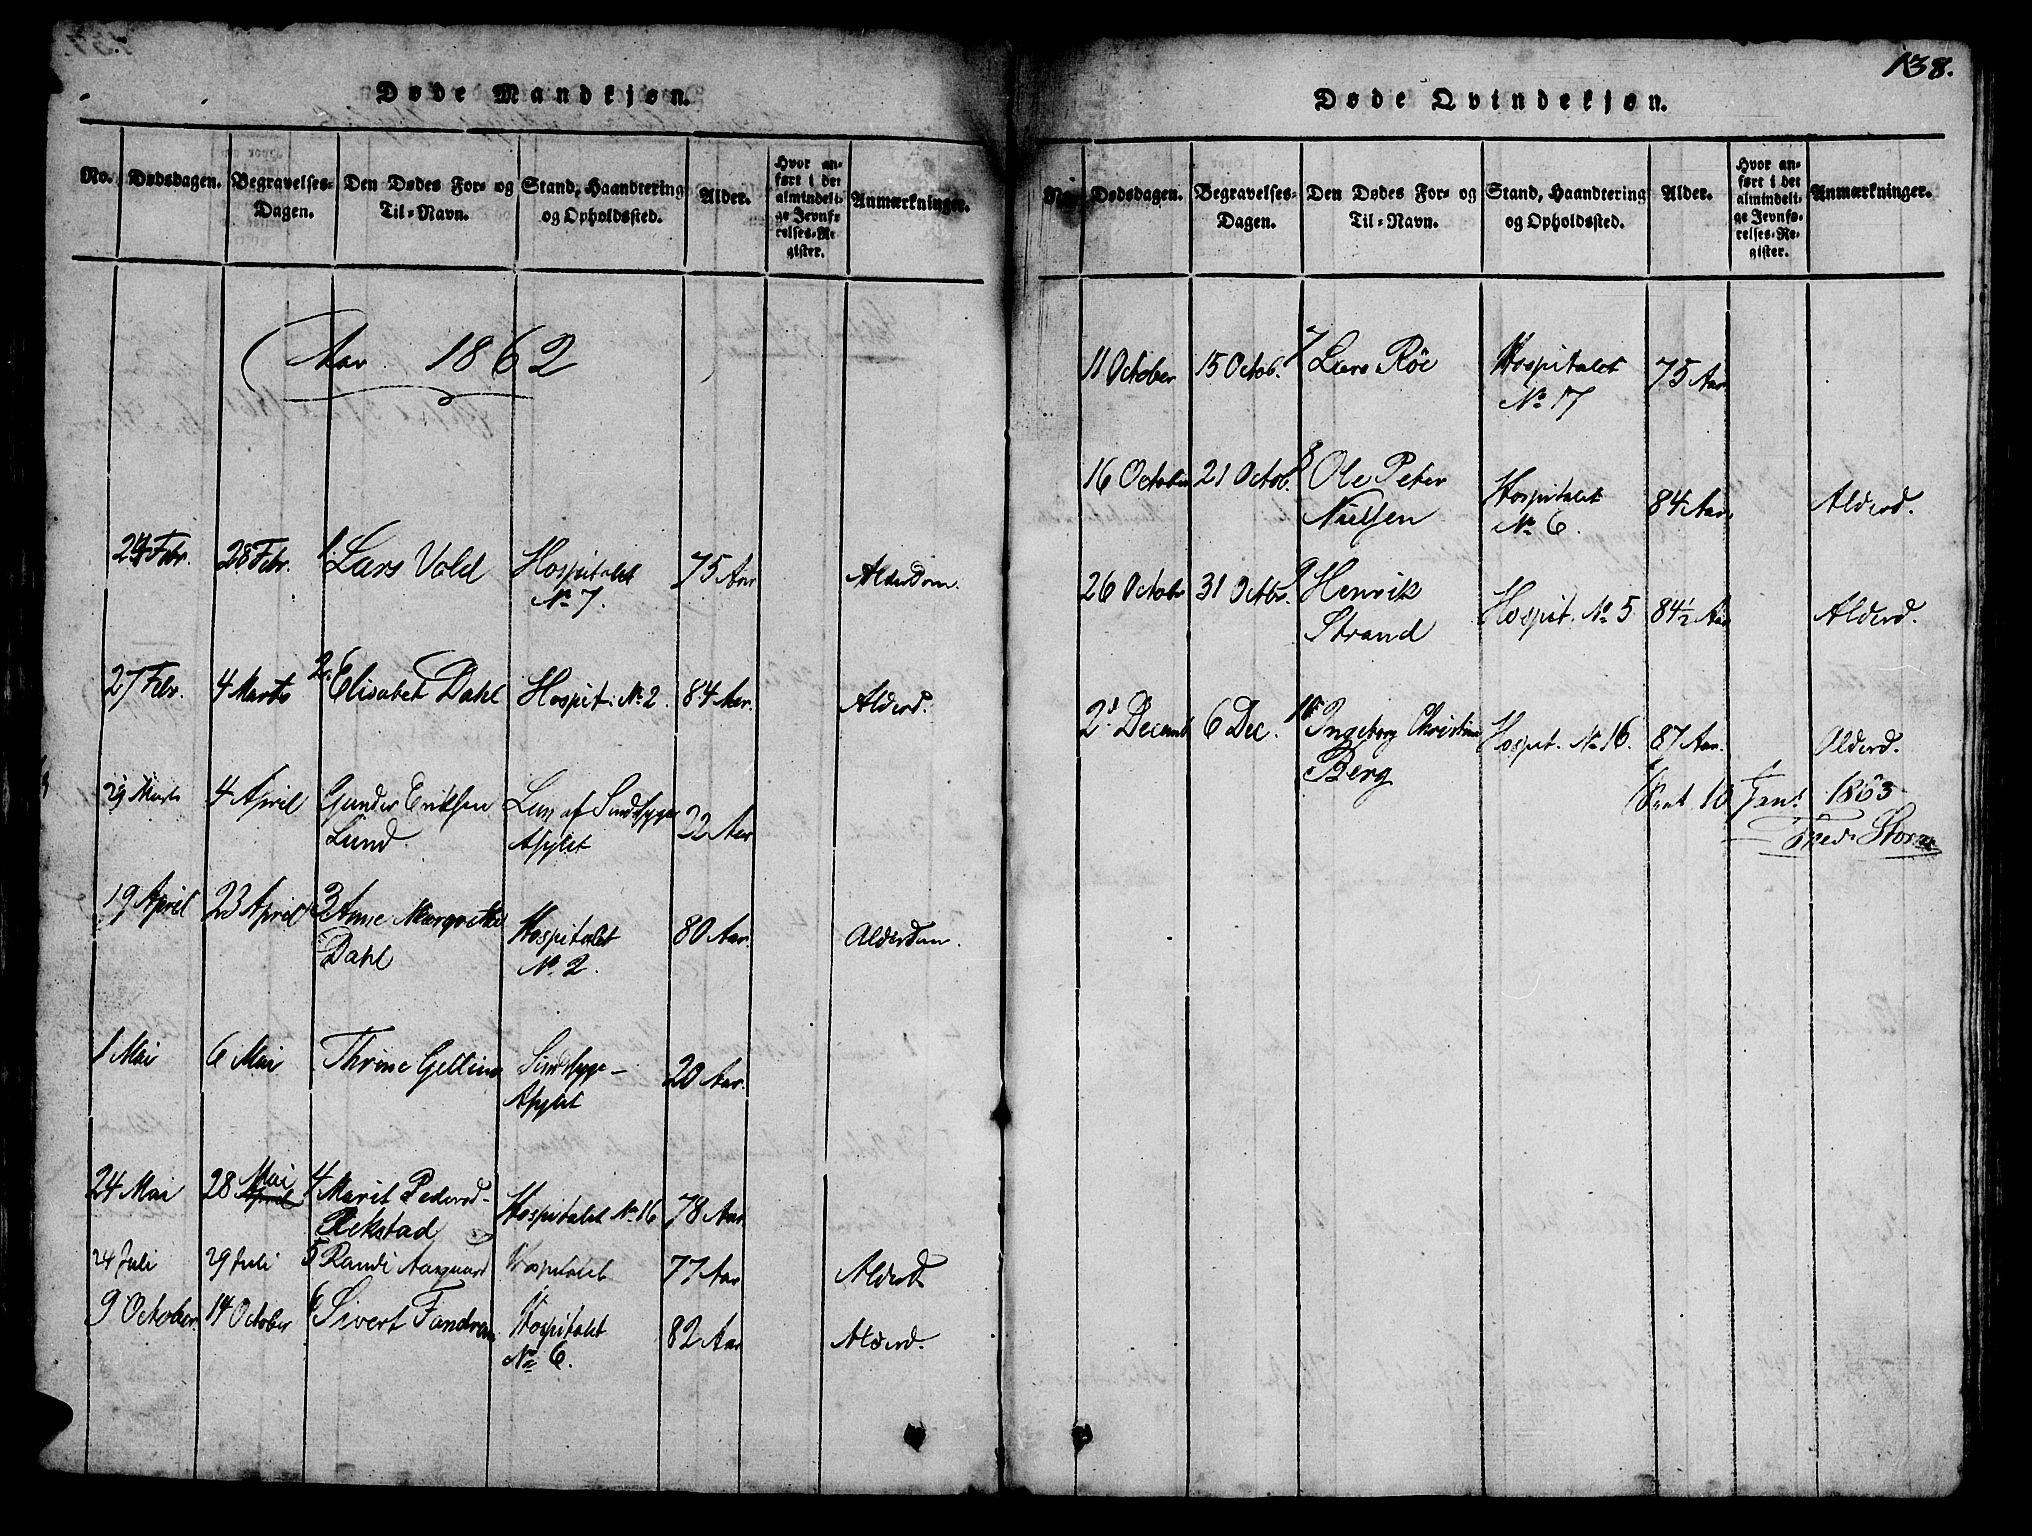 138.
Døde Mandkjøn.
No. Dødsdagen. Begravelses-Dagen. Den Dødes For- og Til-Navn. Stand, Haandtering og Opholdssted. Alder. Hvor anført i det almindelige Jevnførelses-Register. Anmærkninger.
Aar 1862
24 Febr. 28 Febr. 1. Lars Vold Hospitalet 75 Aar Alderdom.
No 7.
27 Febr. 4 Marts 2. Elisabet Dahl Hospit. No 2. 84 Aar. Alderd.
29 Marts 4 April Gunder Eriksen Lem af Sindssyge 22 Aar
Lund. Asylet
19 April 23 April 3 Anne Margrethe Hospitalet 80 Aar. Alderdom.
Dahl No 2.
1 Mai 6 Mai Thrine Sindssyge- 20 Aar.
Asylet
Mai
24 Mai 28 April 4 Marit Pedersd- Hospitalet No 16 78 Aar
Rekstad
24 Juli 29 Juli 5 Randi Aasgaard Hospitalet 77 Aar Alderd.
9 October. 14 October 6 Sivert Hospitalet 82 Aar Alderd.
No 6.
Døde Qvindekjøn.
No. Dødsdagen. Begravelses-Dagen. Den Dødes For- og Til-Navn. Stand, Haandtering og Opholdssted. Alder. Hvor anført i det almindelige Jevnførelses-Register. Anmærkninger.
11 October 15 Octob. 7 Lars Röe Hospitalet 75 Aar
No 17
16 October 21 Octob. 8 Ole Peter Hospitalet 84 Aar Alderd.
Nielsen No 6.
26 Octobr 31 Octbr. 9 Henrik Hospit. No 5 84½ Aar Alderd.
Strand
2d Decemb 6 Dec. 10 Ingeborg Christine Hospit. No 16. 87 Aar. Alderd.
Berg
Seet 10 Jan. 1863
Fred. Storm